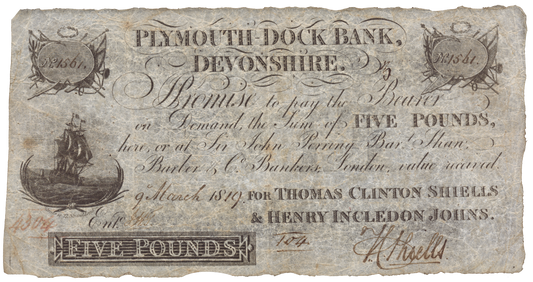 PLYMOUTH-DOCK BANK,
DEVONSHIRE.
Nº1561. Nº1561.
I Promise to pay the Bearer
on Demand, the Sum of FIVE POUNDS,
here, or at Sir John Perring Bart. Shaw,
Barber & Co. Bankers, London, value received.
9 March 1819 FOR THOMAS CLINTON SHIELLS
& HENRY INCLEDON JOHNS.
Entd.
104
FIVE POUNDS
Shiells